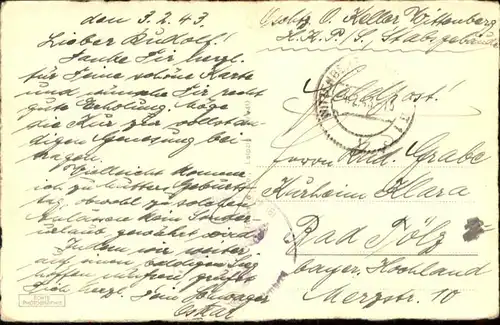 den 3.2.43.
Lieber Rudolf!
Danke Dir herzl.
für Deine schöne Karte
und wünsche Dir recht
gute Erholung. Möge
die Kur zur vollstän-
digen Genesung bei-
tragen.
Vielleicht komme
ich zu Mutters Geburts-
tag, obwohl zu solchen
kein Sonder-
urlaub gewährt wird.
Indem wir weiter
auf einen baldigen Sieg
hoffen grüßt
Dich herzl. Dein Schwager
Oskar
ECHTE
PHOTOGRAPHIE
O. Keller Wittenberg
H.K.P./S., Stabsgebäude
Feldpost!
Herrn Rud. Grabe
Kurheim Klara
Bad Tölz
bayer. Hochland
Merzstr. 10